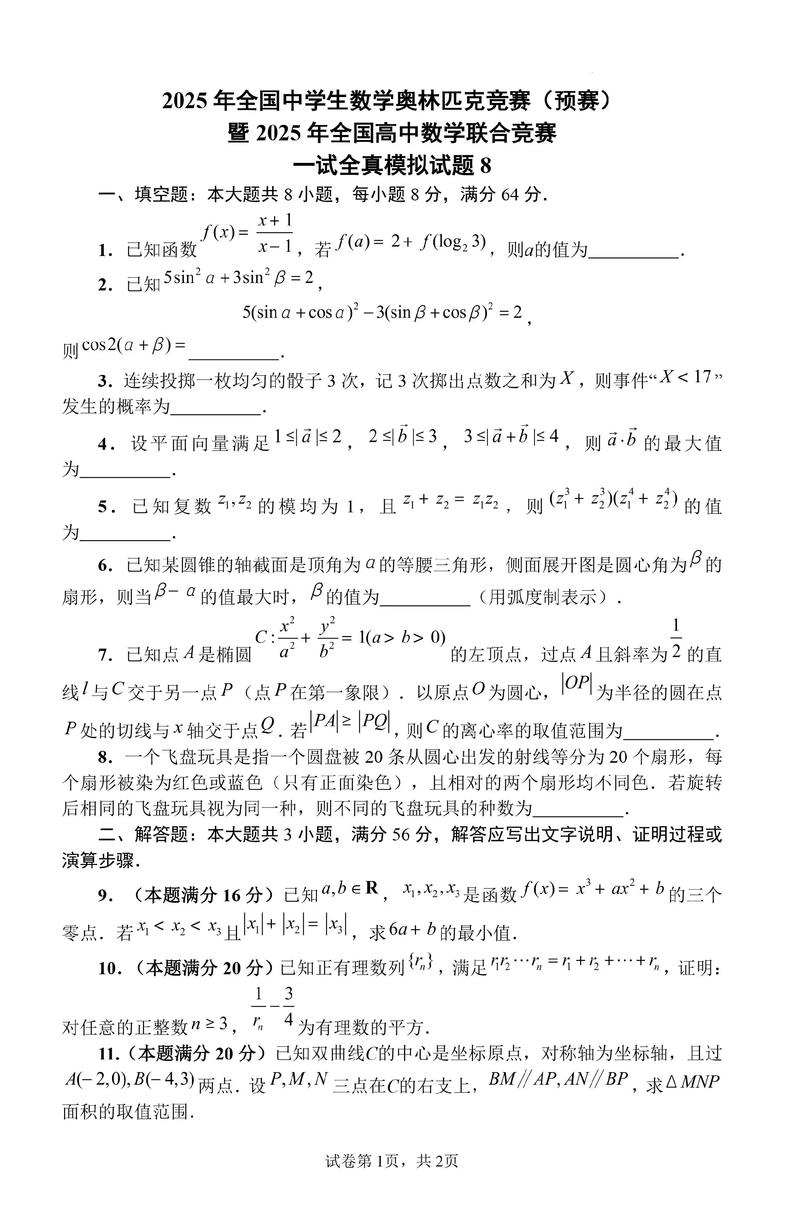 2025 年全国中学生数学奥林匹克竞赛（预赛）
暨 2025 年全国高中数学联合竞赛
一试全真模拟试题 8
一、填空题：本大题共 8 小题，每小题 8 分，满分 64 分．
1．已知函数 f(x)= (x+1)/(x−1)，若 f(a)= 2+ f(log₂ 3)，则a的值为__________．
2．已知 5sin² α +3sin² β = 2，
5(sin α +cos α)² −3(sin β +cos β)² = 2，
则 cos2(α +β)= __________．
3．连续投掷一枚均匀的骰子 3 次，记 3 次掷出点数之和为 X，则事件“X < 17”
发生的概率为__________．
4．设平面向量满足 1≤|a⃗|≤2，2≤|b⃗|≤3，3≤|a⃗+b⃗|≤4，则 a⃗·b⃗ 的最大值
为__________．
5．已知复数 z₁,z₂ 的模均为 1，且 z₁ + z₂ = z₁z₂，则 (z₁³ + z₂³)(z₁⁴ + z₂⁴) 的值
为__________．
6．已知某圆锥的轴截面是顶角为 α 的等腰三角形，侧面展开图是圆心角为 β 的
扇形，则当 β− α 的值最大时，β 的值为__________（用弧度制表示）．
7．已知点 A 是椭圆 C: x²/a² + y²/b² = 1(a> b> 0) 的左顶点，过点 A 且斜率为 1/2 的直
线 l 与 C 交于另一点 P（点 P 在第一象限）．以原点 O 为圆心，|OP| 为半径的圆在点
P 处的切线与 x 轴交于点 Q．若 |PA| ≥ |PQ|，则 C 的离心率的取值范围为__________．
8．一个飞盘玩具是指一个圆盘被 20 条从圆心出发的射线等分为 20 个扇形，每
个扇形被染为红色或蓝色（只有正面染色），且相对的两个扇形均不同色．若旋转
后相同的飞盘玩具视为同一种，则不同的飞盘玩具的种数为__________．
二、解答题：本大题共 3 小题，满分 56 分，解答应写出文字说明、证明过程或
演算步骤．
9．（本题满分 16 分）已知 a,b ∈ R，x₁,x₂,x₃ 是函数 f(x)= x³ + ax² + b 的三个
零点．若 x₁ < x₂ < x₃ 且 |x₁|+ |x₂|= |x₃|，求 6a+ b 的最小值．
10．（本题满分 20 分）已知正有理数列 {rₙ}，满足 r₁r₂ ⋯rₙ = r₁ + r₂ + ⋯+ rₙ，证明：
对任意的正整数 n ≥ 3，1/rₙ − 3/4 为有理数的平方．
11.（本题满分 20 分）已知双曲线C的中心是坐标原点，对称轴为坐标轴，且过
A(− 2,0), B(− 4,3) 两点．设 P, M , N 三点在C的右支上，BM∥AP, AN∥BP，求 Δ MNP
面积的取值范围．
试卷第 1页，共 2页